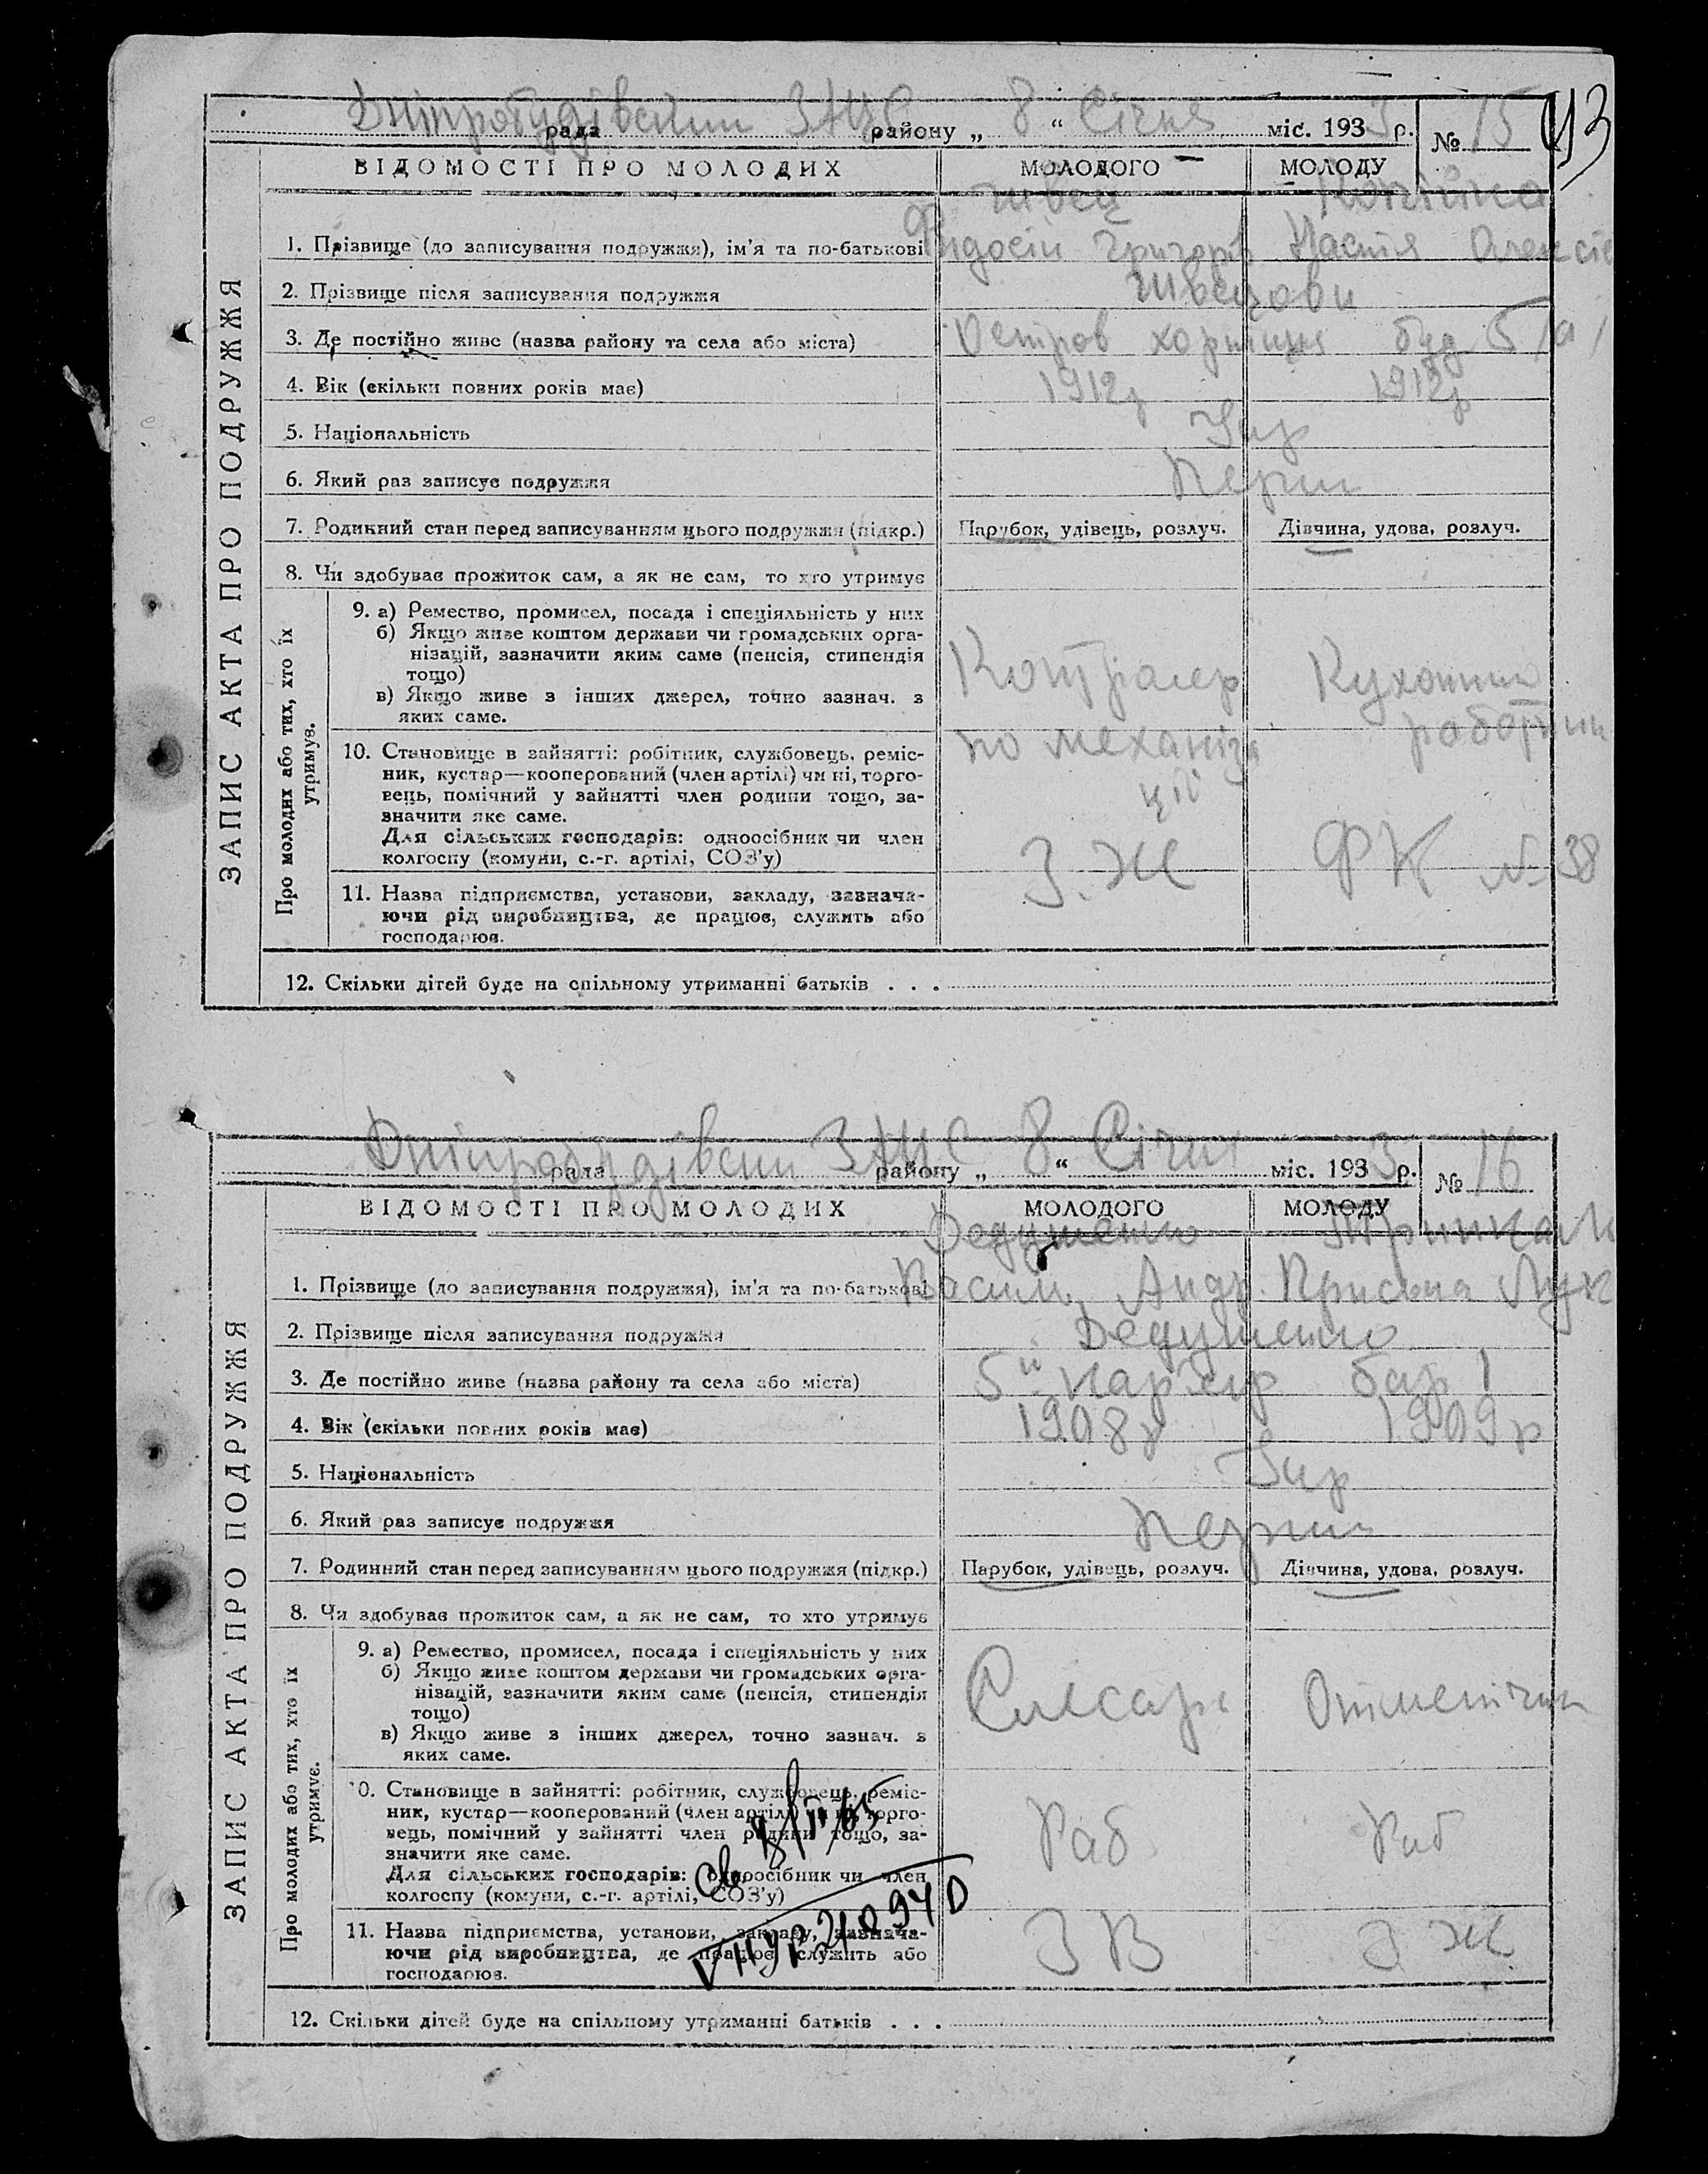 43
Дніпробудівський ЗАЦС
рада району „ 8 “ Січня міс. 1933 р. № 15
ВІДОМОСТІ ПРО МОЛОДИХ МОЛОДОГО МОЛОДУ
ЗАПИС АКТА ПРО ПОДРУЖЖЯ
Швец Копійка
1. Прізвище (до записування подружжя), ім'я та по-батькові Федосій Григорів Настя Олексіє
2. Прізвище після записування подружжя Швецови
3. Де постійно живе (назва району та села або міста) Остров хортиця буд 5/а/
4. Вік (скільки повних років має) 1912р 1912р
5. Національність Укр
6. Який раз записує подружжя Перш
7. Родинний стан перед записуванням цього подружжя (підкр.) Парубок, удівець, розлуч. Дівчина, удова, розлуч.
8. Чи здобуває прожиток сам, а як не сам, то хто утримує
Про молодих або тих, хто їх утримує.
9. а) Ремество, промисел, посада і спеціяльність у них
б) Якщо живе коштом держави чи громадських орга-
нізацій, зазначити яким саме (пенсія, стипендія
тощо)
в) Якщо живе з інших джерел, точно зазнач. з
яких саме.
Контролер Кухонний
по механіза работник
ції
10. Становище в зайнятті: робітник, службовець, реміс-
ник, кустар—кооперований (член артілі) чи ні, торго-
вець, помічний у зайнятті член родини тощо, за-
значити яке саме.
Для сільських господарів: одноосібник чи член
колгоспу (комуни, с.-г. артілі, СОЗ'у)
З. Ж ФК № 38
11. Назва підприємства, установи, закладу, зазнача-
ючи рід виробництва, де працює, служить або
господарює.
12. Скільки дітей буде на спільному утриманні батьків . . .
Дніпробудівськи ЗАЦС
рада району „ 8 “ Січня міс. 1933 р. № 16
ВІДОМОСТІ ПРО МОЛОДИХ МОЛОДОГО МОЛОДУ
ЗАПИС АКТА ПРО ПОДРУЖЖЯ
Дедушенко
1. Прізвище (до записування подружжя), ім'я та по-батькові Васили Андр. Приська Лук
2. Прізвище після записування подружжя Дедушенко
3. Де постійно живе (назва району та села або міста) 5й бар 1
4. Вік (скільки повних років має) 1908р 1909р
5. Національність Укр
6. Який раз записує подружжя Перший
7. Родинний стан перед записуванням цього подружжя (підкр.) Парубок, удівець, розлуч. Дівчина, удова, розлуч.
8. Чи здобуває прожиток сам, а як не сам, то хто утримує
Про молодих або тих, хто їх утримує.
9. а) Ремество, промисел, посада і спеціяльність у них
б) Якщо живе коштом держави чи громадських орга-
нізацій, зазначити яким саме (пенсія, стипендія
тощо)
в) Якщо живе з інших джерел, точно зазнач. з
яких саме.
Слесарь
10. Становище в зайнятті: робітник, службовець, реміс-
ник, кустар—кооперований (член артілі) чи ні, торго-
вець, помічний у зайнятті член родини тощо, за-
значити яке саме.
Для сільських господарів: одноосібник чи член
колгоспу (комуни, с.-г. артілі, СОЗ'у)
Раб Раб
11. Назва підприємства, установи, закладу, зазнача-
ючи рід виробництва, де працює, служить або
господарює.
З В З Ж
12. Скільки дітей буде на спільному утриманні батьків . . .